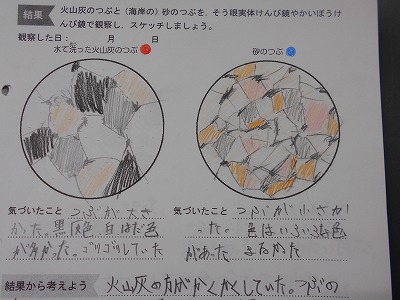 結果
火山灰のつぶと(海岸の)砂のつぶを、そう眼実体けんび鏡やかいぼうけ
んび鏡で観察し、スケッチしましょう。
観察した日: 月 日
水で洗った火山灰のつぶ
砂のつぶ
気づいたこと つぶが大き
かった。黒 灰色 白 はだ色
が多かった。ゴリゴリしていた
気づいたこと つぶが小さか
った。色はいろいろな色
があった
結果から考えよう 火山灰の方がかくかくしていた。つぶの